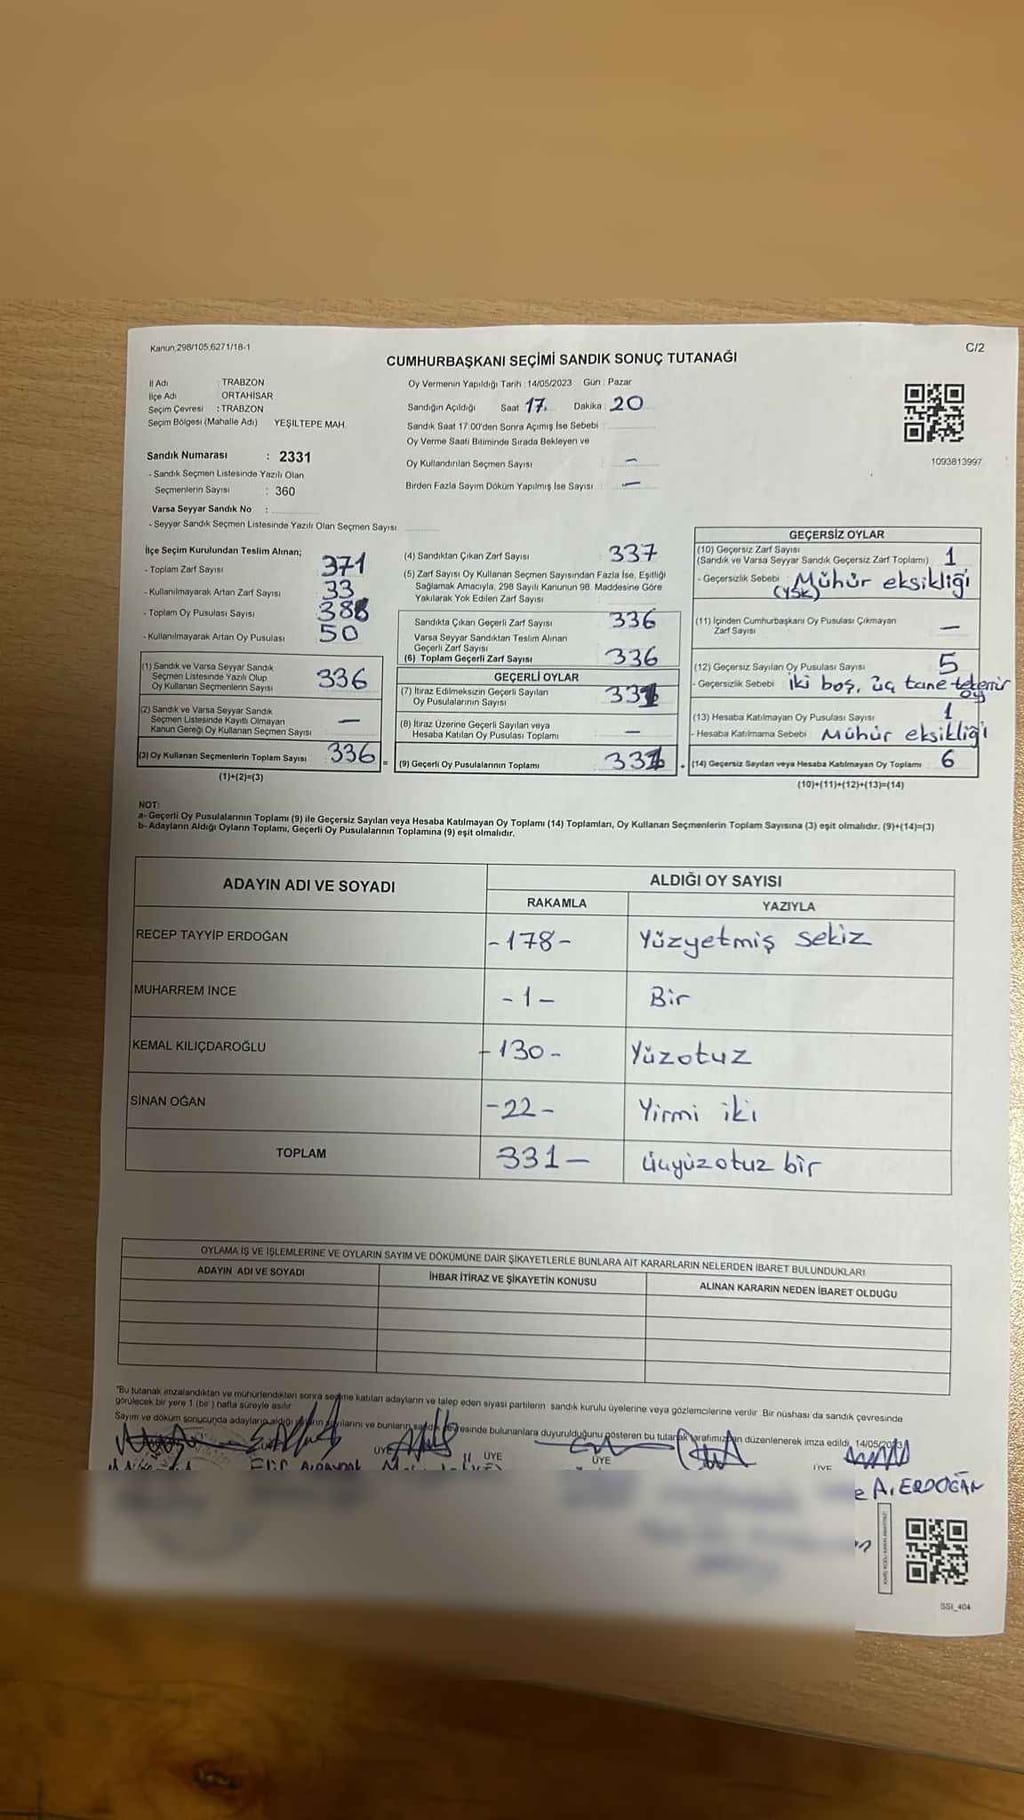 Kanun,298/105,6271/18-1
C/2
CUMHURBAŞKANI SEÇİMİ SANDIK SONUÇ TUTANAĞI
İl Adı : TRABZON
İlçe Adı : ORTAHİSAR
Seçim Çevresi : TRABZON
Seçim Bölgesi (Mahalle Adı) YEŞİLTEPE MAH.
Sandık Numarası : 2331
- Sandık Seçmen Listesinde Yazılı Olan
Seçmenlerin Sayısı : 360
Varsa Seyyar Sandık No :
- Seyyar Sandık Seçmen Listesinde Yazılı Olan Seçmen Sayısı
Oy Vermenin Yapıldığı Tarih : 14/05/2023 Gün : Pazar
Sandığın Açıldığı Saat 17. Dakika 20
Sandık Saat 17:00'den Sonra Açımış İse Sebebi :
Oy Verme Saati Bitiminde Sırada Bekleyen ve
Oy Kullandırılan Seçmen Sayısı : —
Birden Fazla Sayım Döküm Yapılmış İse Sayısı : —
1093813997
İlçe Seçim Kurulundan Teslim Alınan;
- Toplam Zarf Sayısı 371
- Kullanılmayarak Artan Zarf Sayısı 33
- Toplam Oy Pusulası Sayısı
- Kullanılmayarak Artan Oy Pusulası 50
(1) Sandık ve Varsa Seyyar Sandık
Seçmen Listesinde Yazılı Olup
Oy Kullanan Seçmenlerin Sayısı 336
(2) Sandık ve Varsa Seyyar Sandık
Seçmen Listesinde Kayıtlı Olmayan
Kanun Gereği Oy Kullanan Seçmen Sayısı —
(3) Oy Kullanan Seçmenlerin Toplam Sayısı 336 =
(1)+(2)=(3)
(4) Sandıktan Çıkan Zarf Sayısı 337
(5) Zarf Sayısı Oy Kullanan Seçmen Sayısından Fazla İse, Eşitliği
Sağlamak Amacıyla, 298 Sayılı Kanunun 98. Maddesine Göre
Yakılarak Yok Edilen Zarf Sayısı
Sandıkta Çıkan Geçerli Zarf Sayısı 336
Varsa Seyyar Sandıktan Teslim Alınan
Geçerli Zarf Sayısı
(6) Toplam Geçerli Zarf Sayısı 336
GEÇERLİ OYLAR
(7) İtiraz Edilmeksizin Geçerli Sayılan
Oy Pusulalarının Sayısı
(8) İtiraz Üzerine Geçerli Sayılan veya
Hesaba Katılan Oy Pusulası Toplamı —
(9) Geçerli Oy Pusulalarının Toplamı
GEÇERSİZ OYLAR
(10) Geçersiz Zarf Sayısı
(Sandık ve Varsa Seyyar Sandık Geçersiz Zarf Toplamı) 1
- Geçersizlik Sebebi : Mühür eksikliği
(YSK)
(11) İçinden Cumhurbaşkanı Oy Pusulası Çıkmayan
Zarf Sayısı —
(12) Geçersiz Sayılan Oy Pusulası Sayısı 5
- Geçersizlik Sebebi iki boş, üç tane
oy
(13) Hesaba Katılmayan Oy Pusulası Sayısı 1
- Hesaba Katılmama Sebebi Mühür eksikliği
(14) Geçersiz Sayılan veya Hesaba Katılmayan Oy Toplamı 6
(10)+(11)+(12)+(13)=(14)
NOT:
a- Geçerli Oy Pusulalarının Toplamı (9) ile Geçersiz Sayılan veya Hesaba Katılmayan Oy Toplamı (14) Toplamları, Oy Kullanan Seçmenlerin Toplam Sayısına (3) eşit olmalıdır. (9)+(14)=(3)
b- Adayların Aldığı Oyların Toplamı, Geçerli Oy Pusulalarının Toplamına (9) eşit olmalıdır.
ADAYIN ADI VE SOYADI ALDIĞI OY SAYISI
RAKAMLA YAZIYLA
RECEP TAYYİP ERDOĞAN -178- Yüzyetmiş sekiz
MUHARREM İNCE -1- Bir
KEMAL KILIÇDAROĞLU -130- Yüzotuz
SİNAN OĞAN -22- Yirmi iki
TOPLAM 331- Üçyüzotuz bir
OYLAMA İŞ VE İŞLEMLERİNE VE OYLARIN SAYIM VE DÖKÜMÜNE DAİR ŞİKAYETLERLE BUNLARA AİT KARARLARIN NELERDEN İBARET BULUNDUKLARI
ADAYIN ADI VE SOYADI İHBAR İTİRAZ VE ŞİKAYETİN KONUSU ALINAN KARARIN NEDEN İBARET OLDUĞU
"Bu tutanak imzalandıktan ve mühürlendikten sonra seçime katılan adayların ve talep eden siyasi partilerin sandık kurulu üyelerine veya gözlemcilerine verilir. Bir nüshası da sandık çevresinde
görülecek bir yere 1 (bir) hafta süreyle asılır
Sayım ve döküm sonucunda adayların aldığı sayılarını ve bunların sandık çevresinde bulunanlara duyurulduğunu gösteren bu tutanak tarafımızdan düzenlenerek imza edildi. 14/05/2023
ÜYE ÜYE ÜYE ÜYE
A. ERDOĞAN
SSI_404